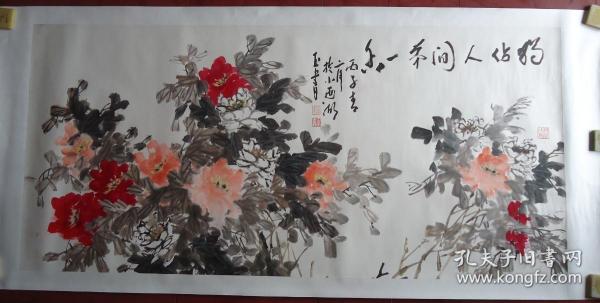 独占人间第一香
丙子春
二月
于小西湖
孔夫子旧书网
www.kongfz.com